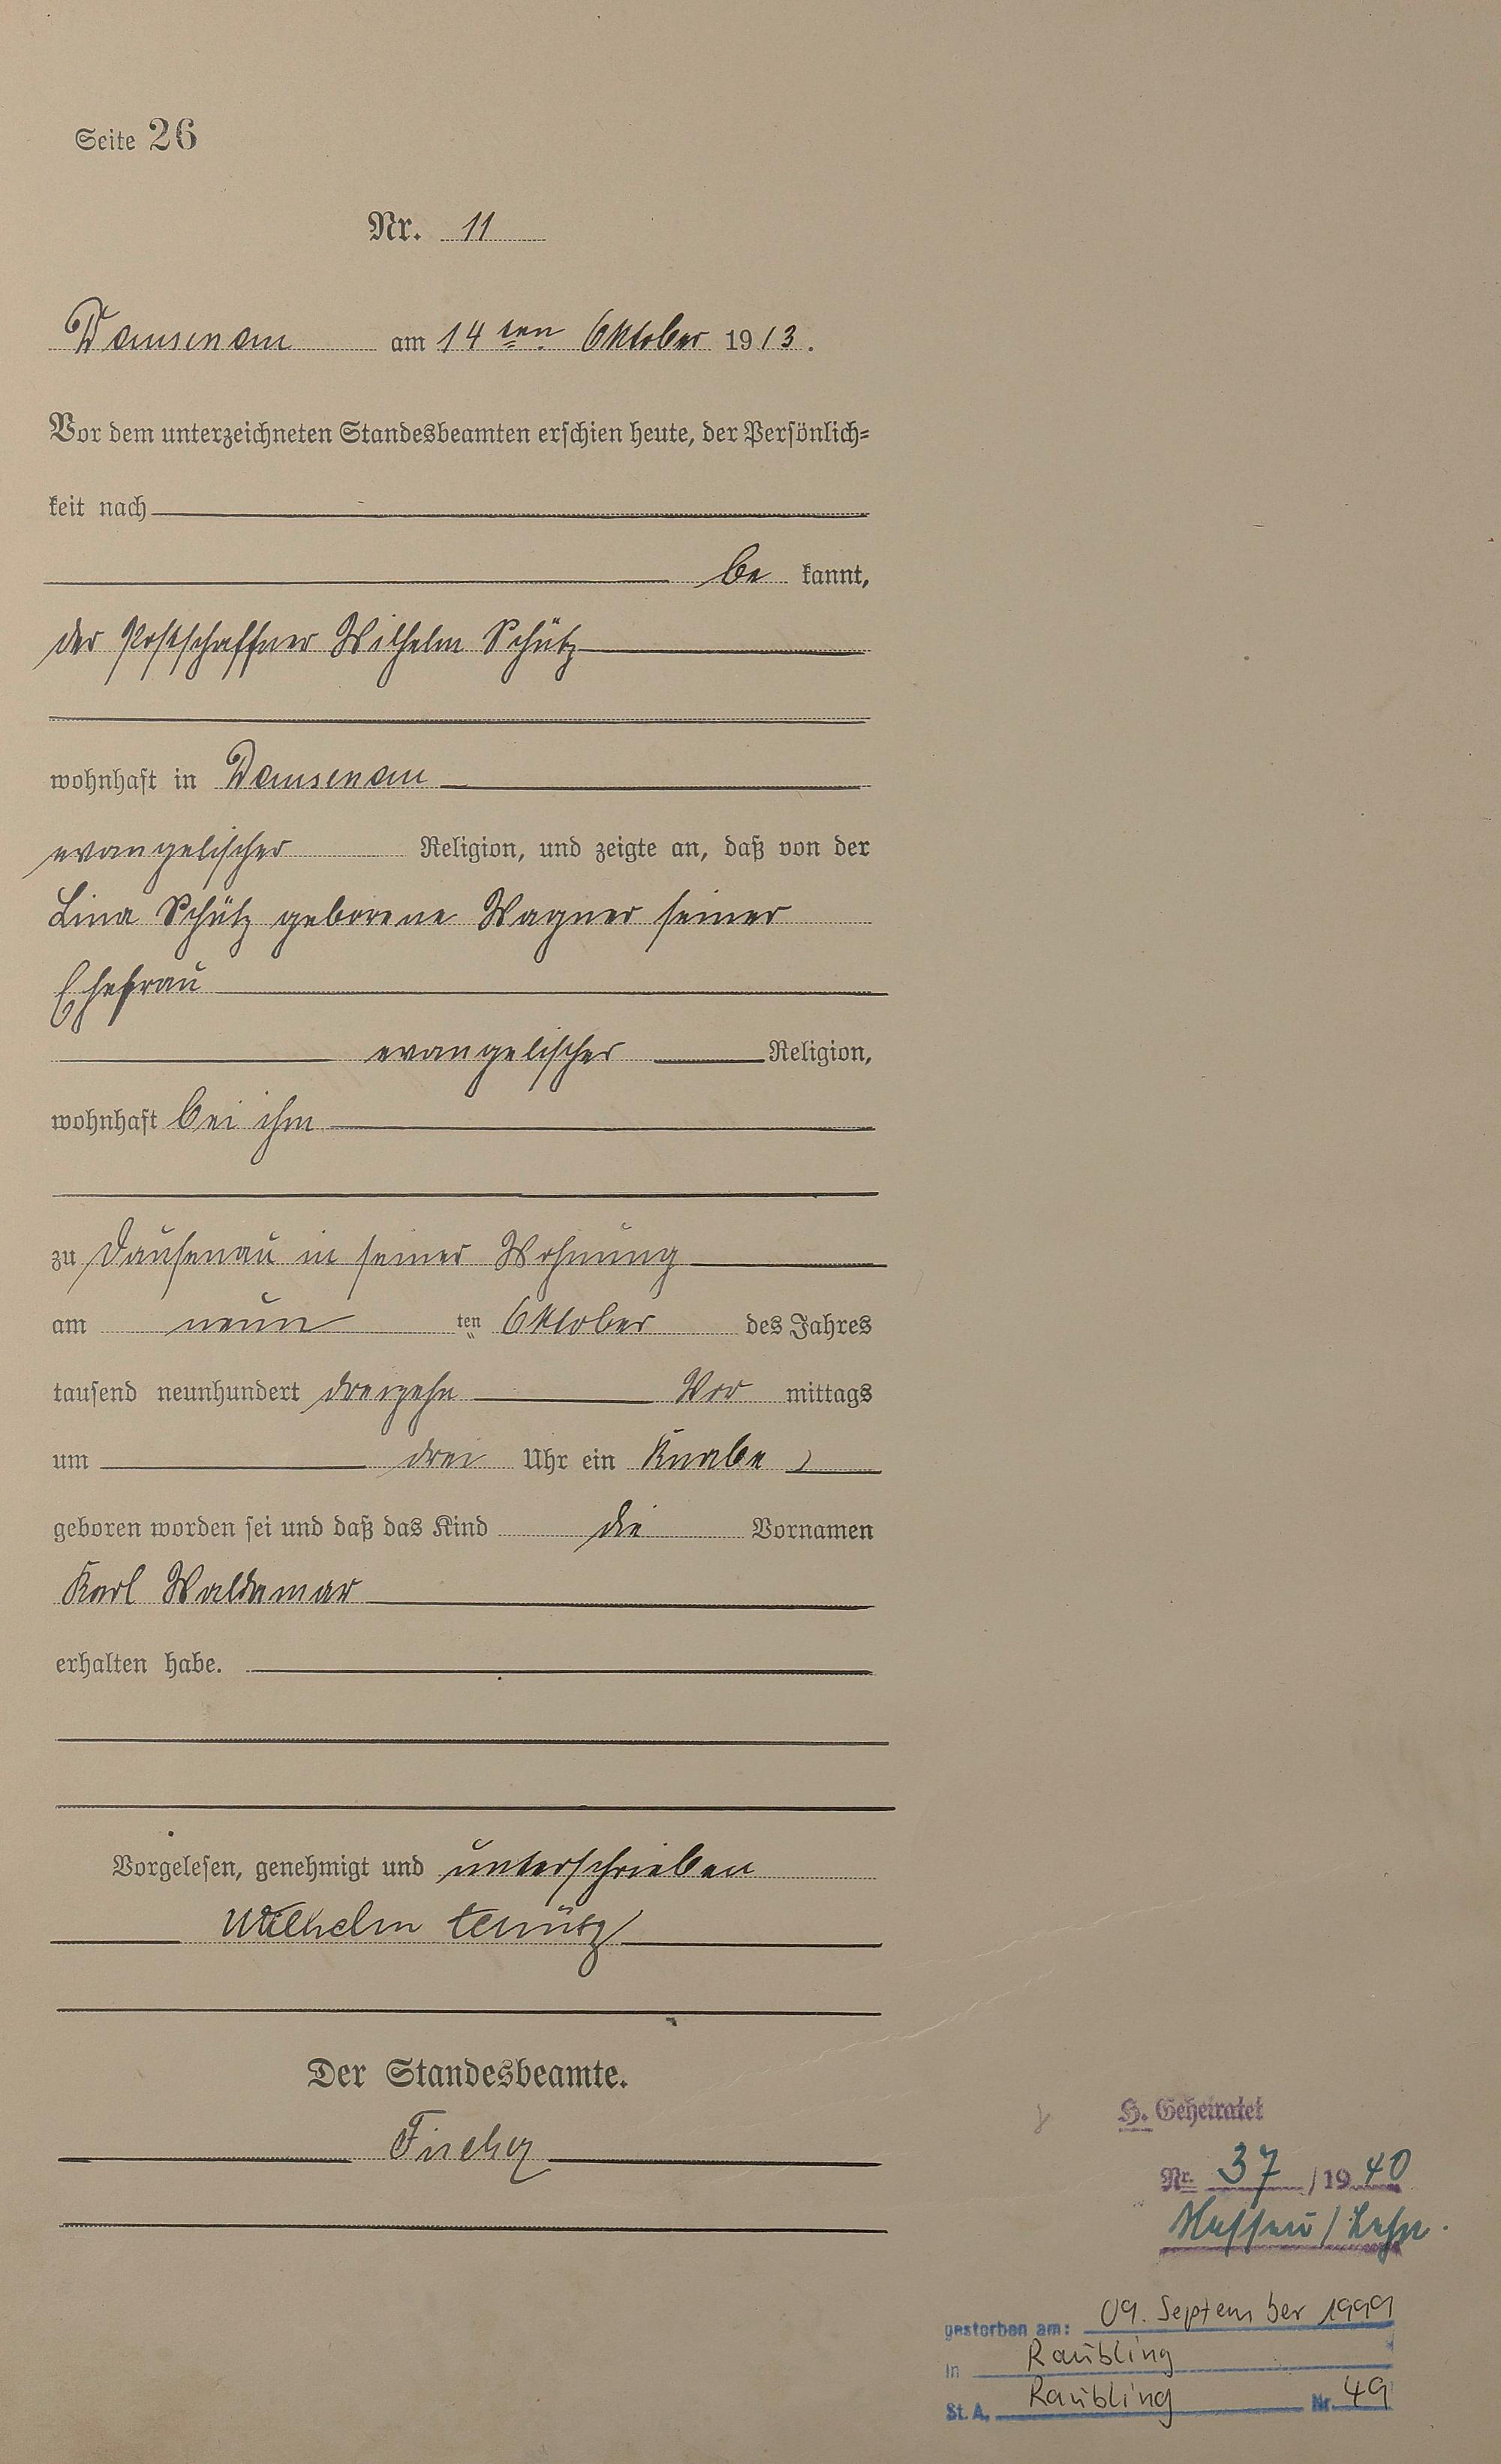 Seite 26
Nr. 11
Dausenau am 14 ten Oktober 1913.
Vor dem unterzeichneten Standesbeamten erschien heute, der Persönlich=
keit nach
be kannt,
der Postschaffner Wilhelm Schütz
wohnhaft in Dausenau
evangelischer Religion, und zeigte an, daß von der
Lina Schütz geborene Wagner seiner
Ehefrau
evangelischer Religion,
wohnhaft bei ihm
zu Dausenau in seiner Wohnung
am neun ten Oktober des Jahres
tausend neunhundert dreizehn Vor mittags
um drei Uhr ein Knabe
geboren worden sei und daß das Kind die Vornamen
Karl Waldemar
erhalten habe.
Vorgelesen, genehmigt und unterschrieben
Wilhelm Schütz
Der Standesbeamte.
Fischer
H. Geheiratet
Nr. 37 /1940
Nassau / Lahn.
gestorben am: 09. September 1999
in Raubling
St. A. Raubling Nr. 49